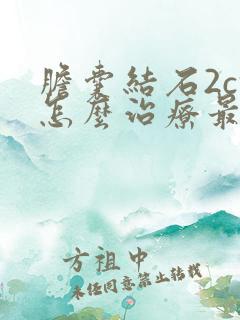 膽囊結石2c
怎麼治療最
方祖中
未経同意禁止轉載